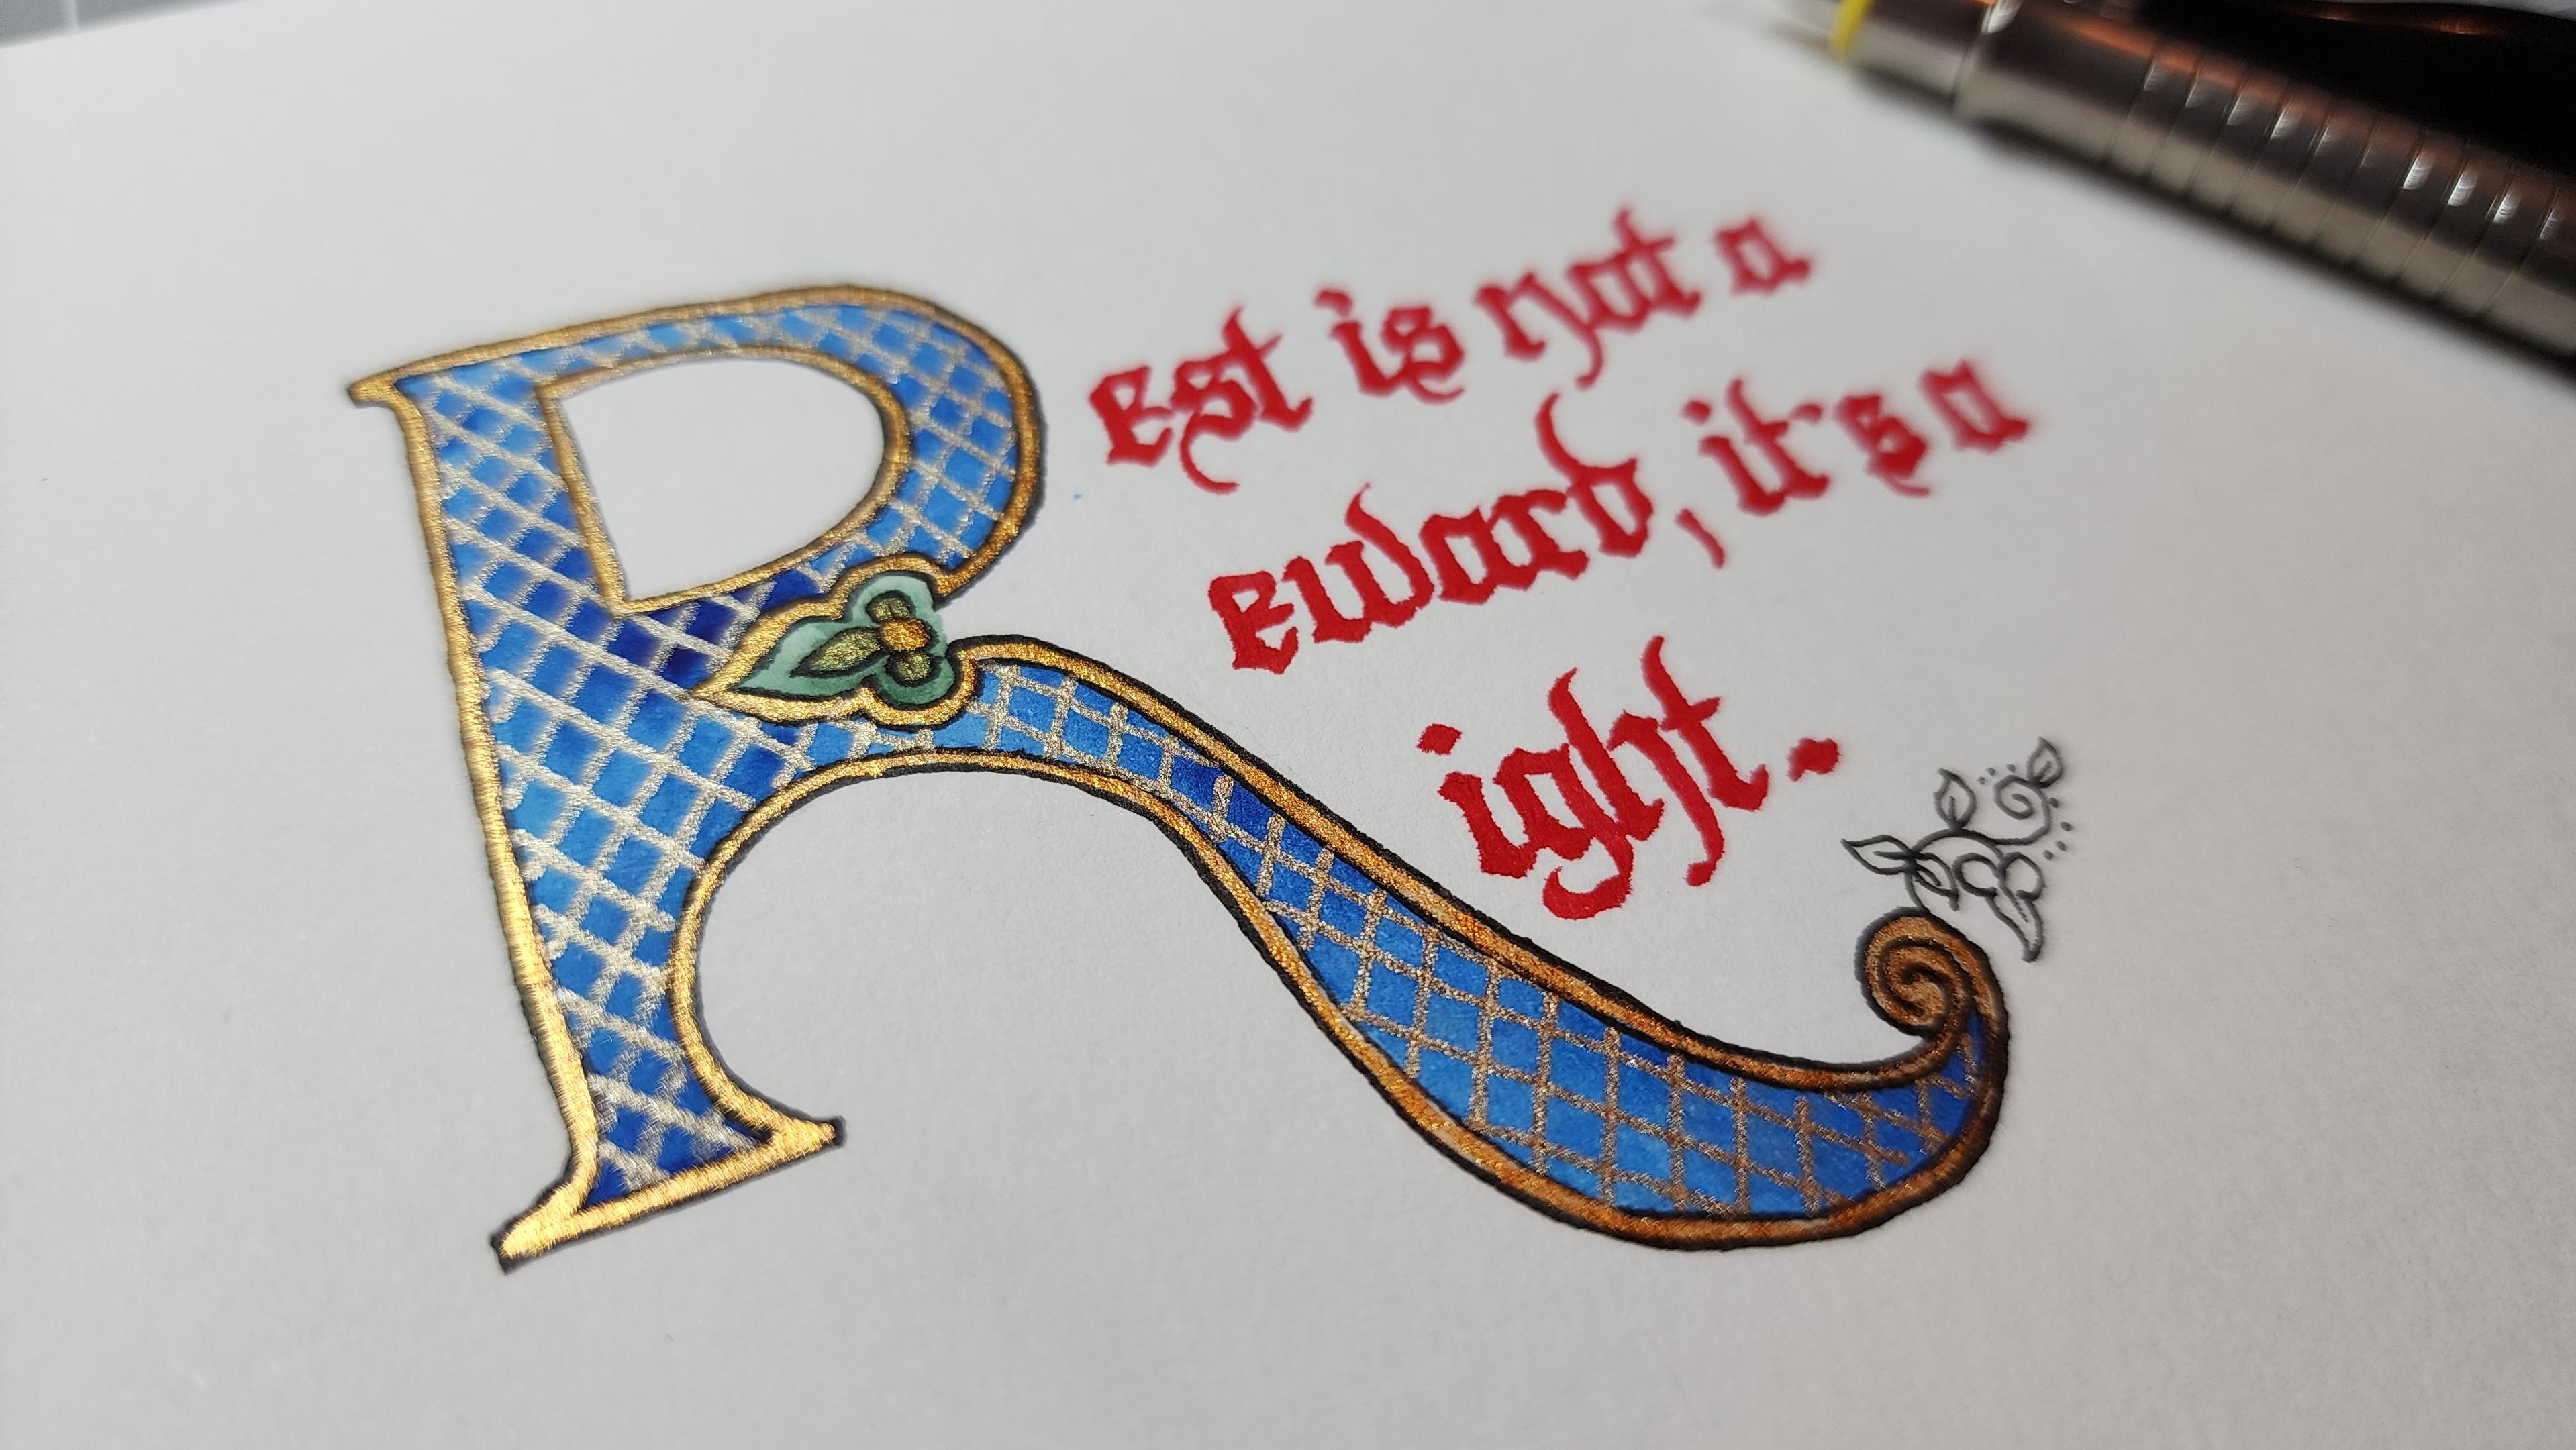 Rest is not a
eward, it's a
ight.